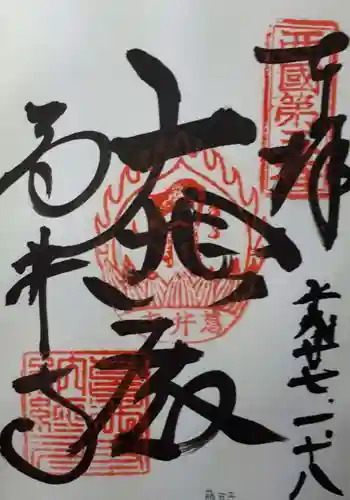 奉拝
西國第五番
平成廿七.一.十八
大悲殿
葛井寺
葛井寺